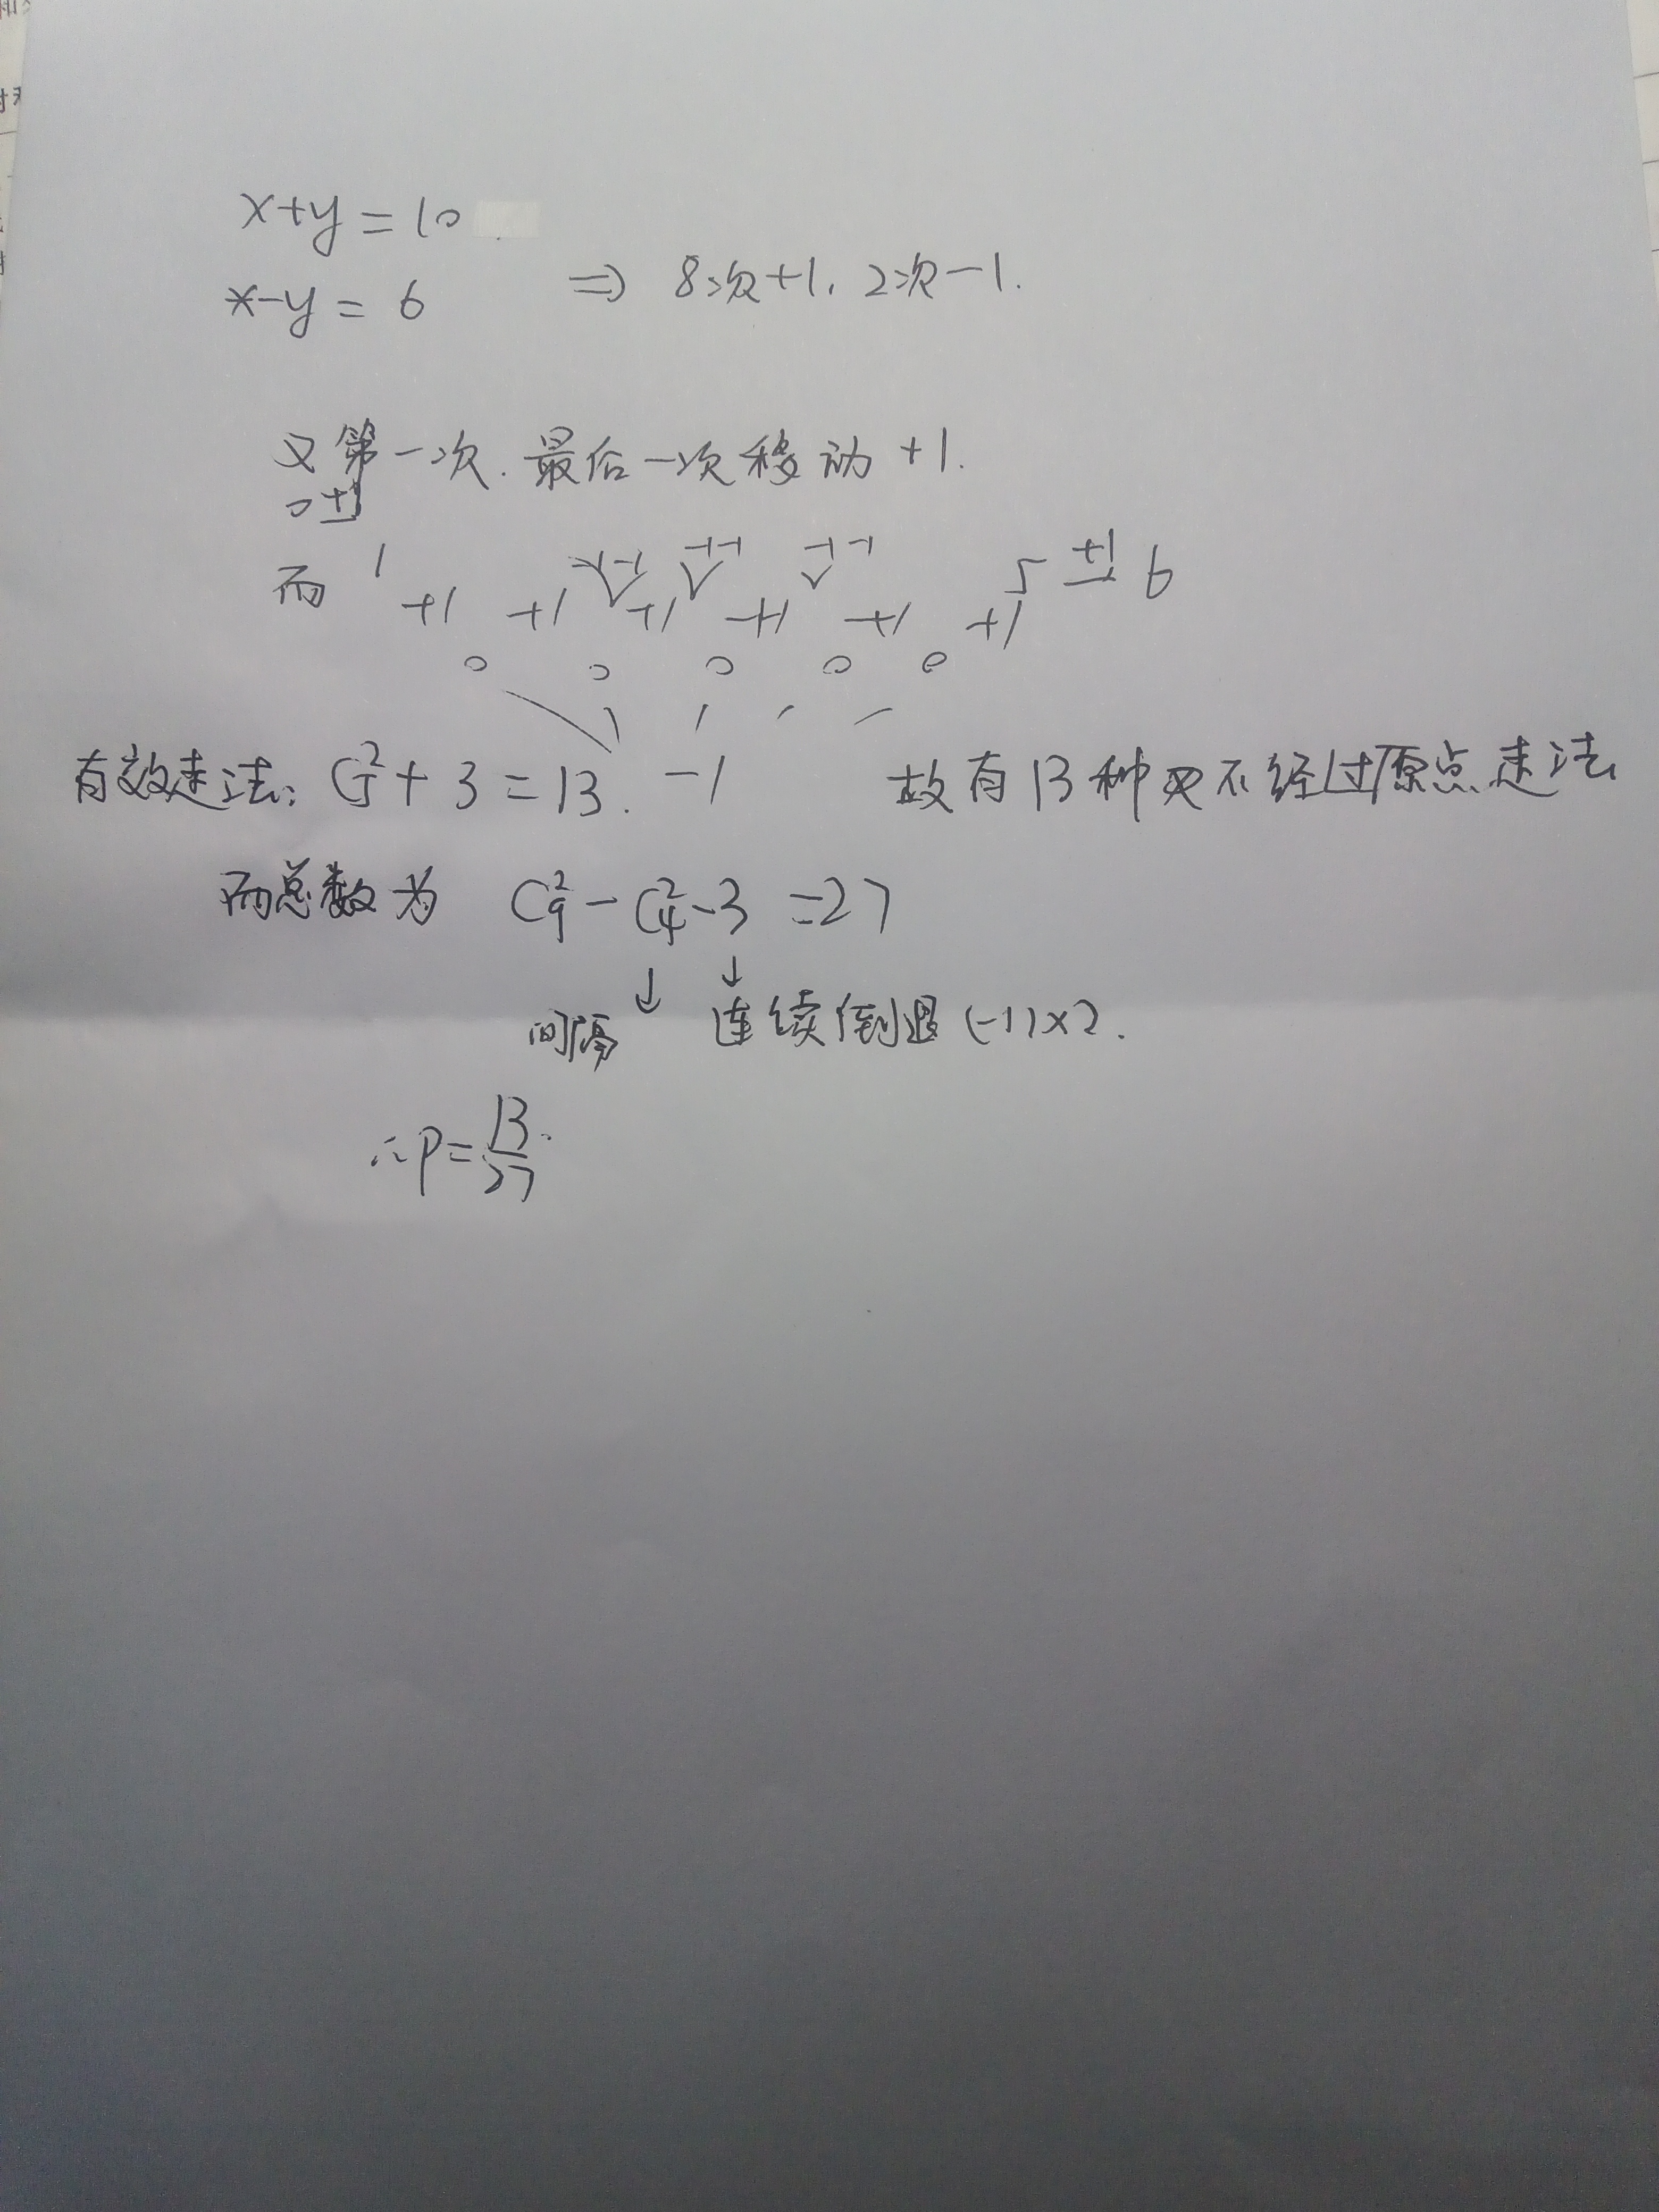 x+y=10
x-y=6 ⇒ 8次+1, 2次-1.
又第一次.最后一次移动+1.
0+1
而 1 -1-1 -1-1 -1-1 5 +1 6
+1 +1 +1 +1 +1 +1
0 0 0 0 0
有效走法: C₅²+3=13. -1 故有13种 不经过原点走法
而总数为 C₉²-C₄²-3=27
↓ ↓
间隔 连续倒退(-1)×2.
∴P=13/27